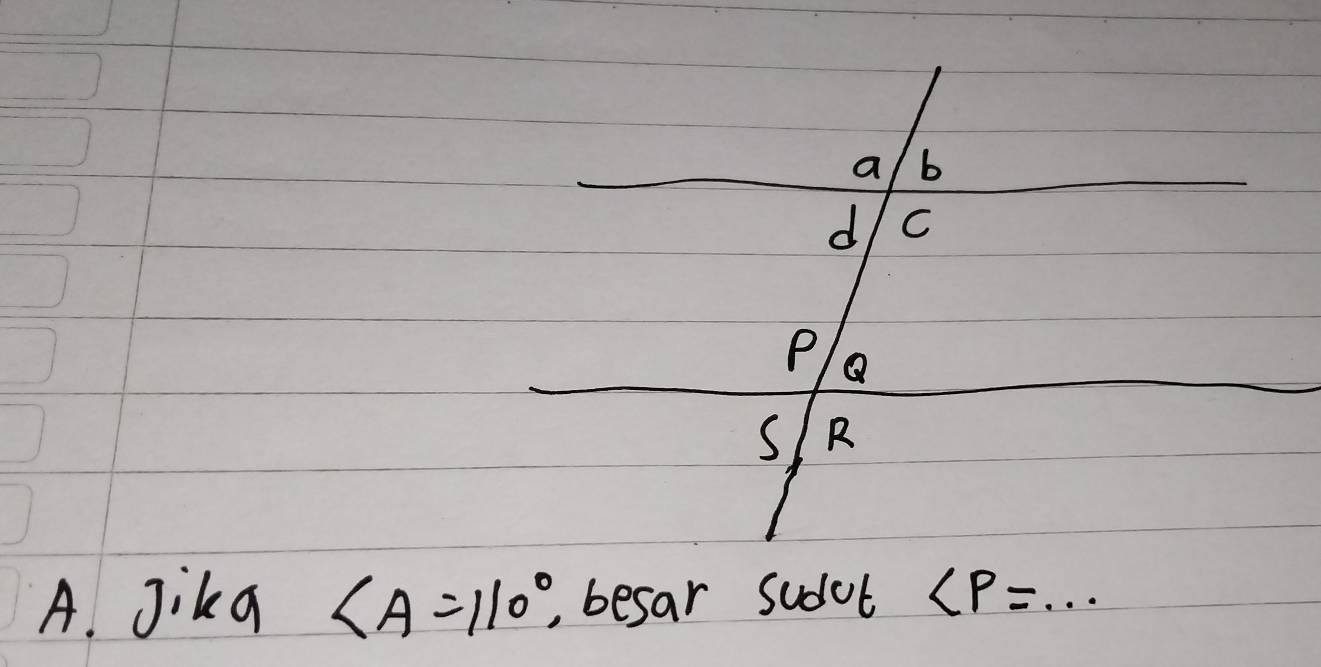 a b
d c
P Q
S R
A. Jika <A=110°, besar sudut <P=...